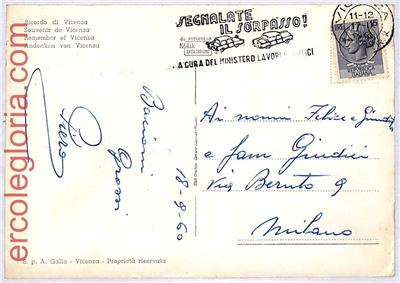 Ricordo di Vicenza
Souvenir de Vicenza
Remember of Vicenza
Andenken von Vicenza
SEGNALATE
IL SORPASSO!
Kodak
A CURA DEL MINISTERO LAVORI
11-12
Bacioni
Grossi
Piero
18-9-60
Ai nonni Felice e
e fam Giudici
Via Beruto 9
Milano
S. p. A. Galla - Vicenza - Proprietà riservata
ercolegloria.com